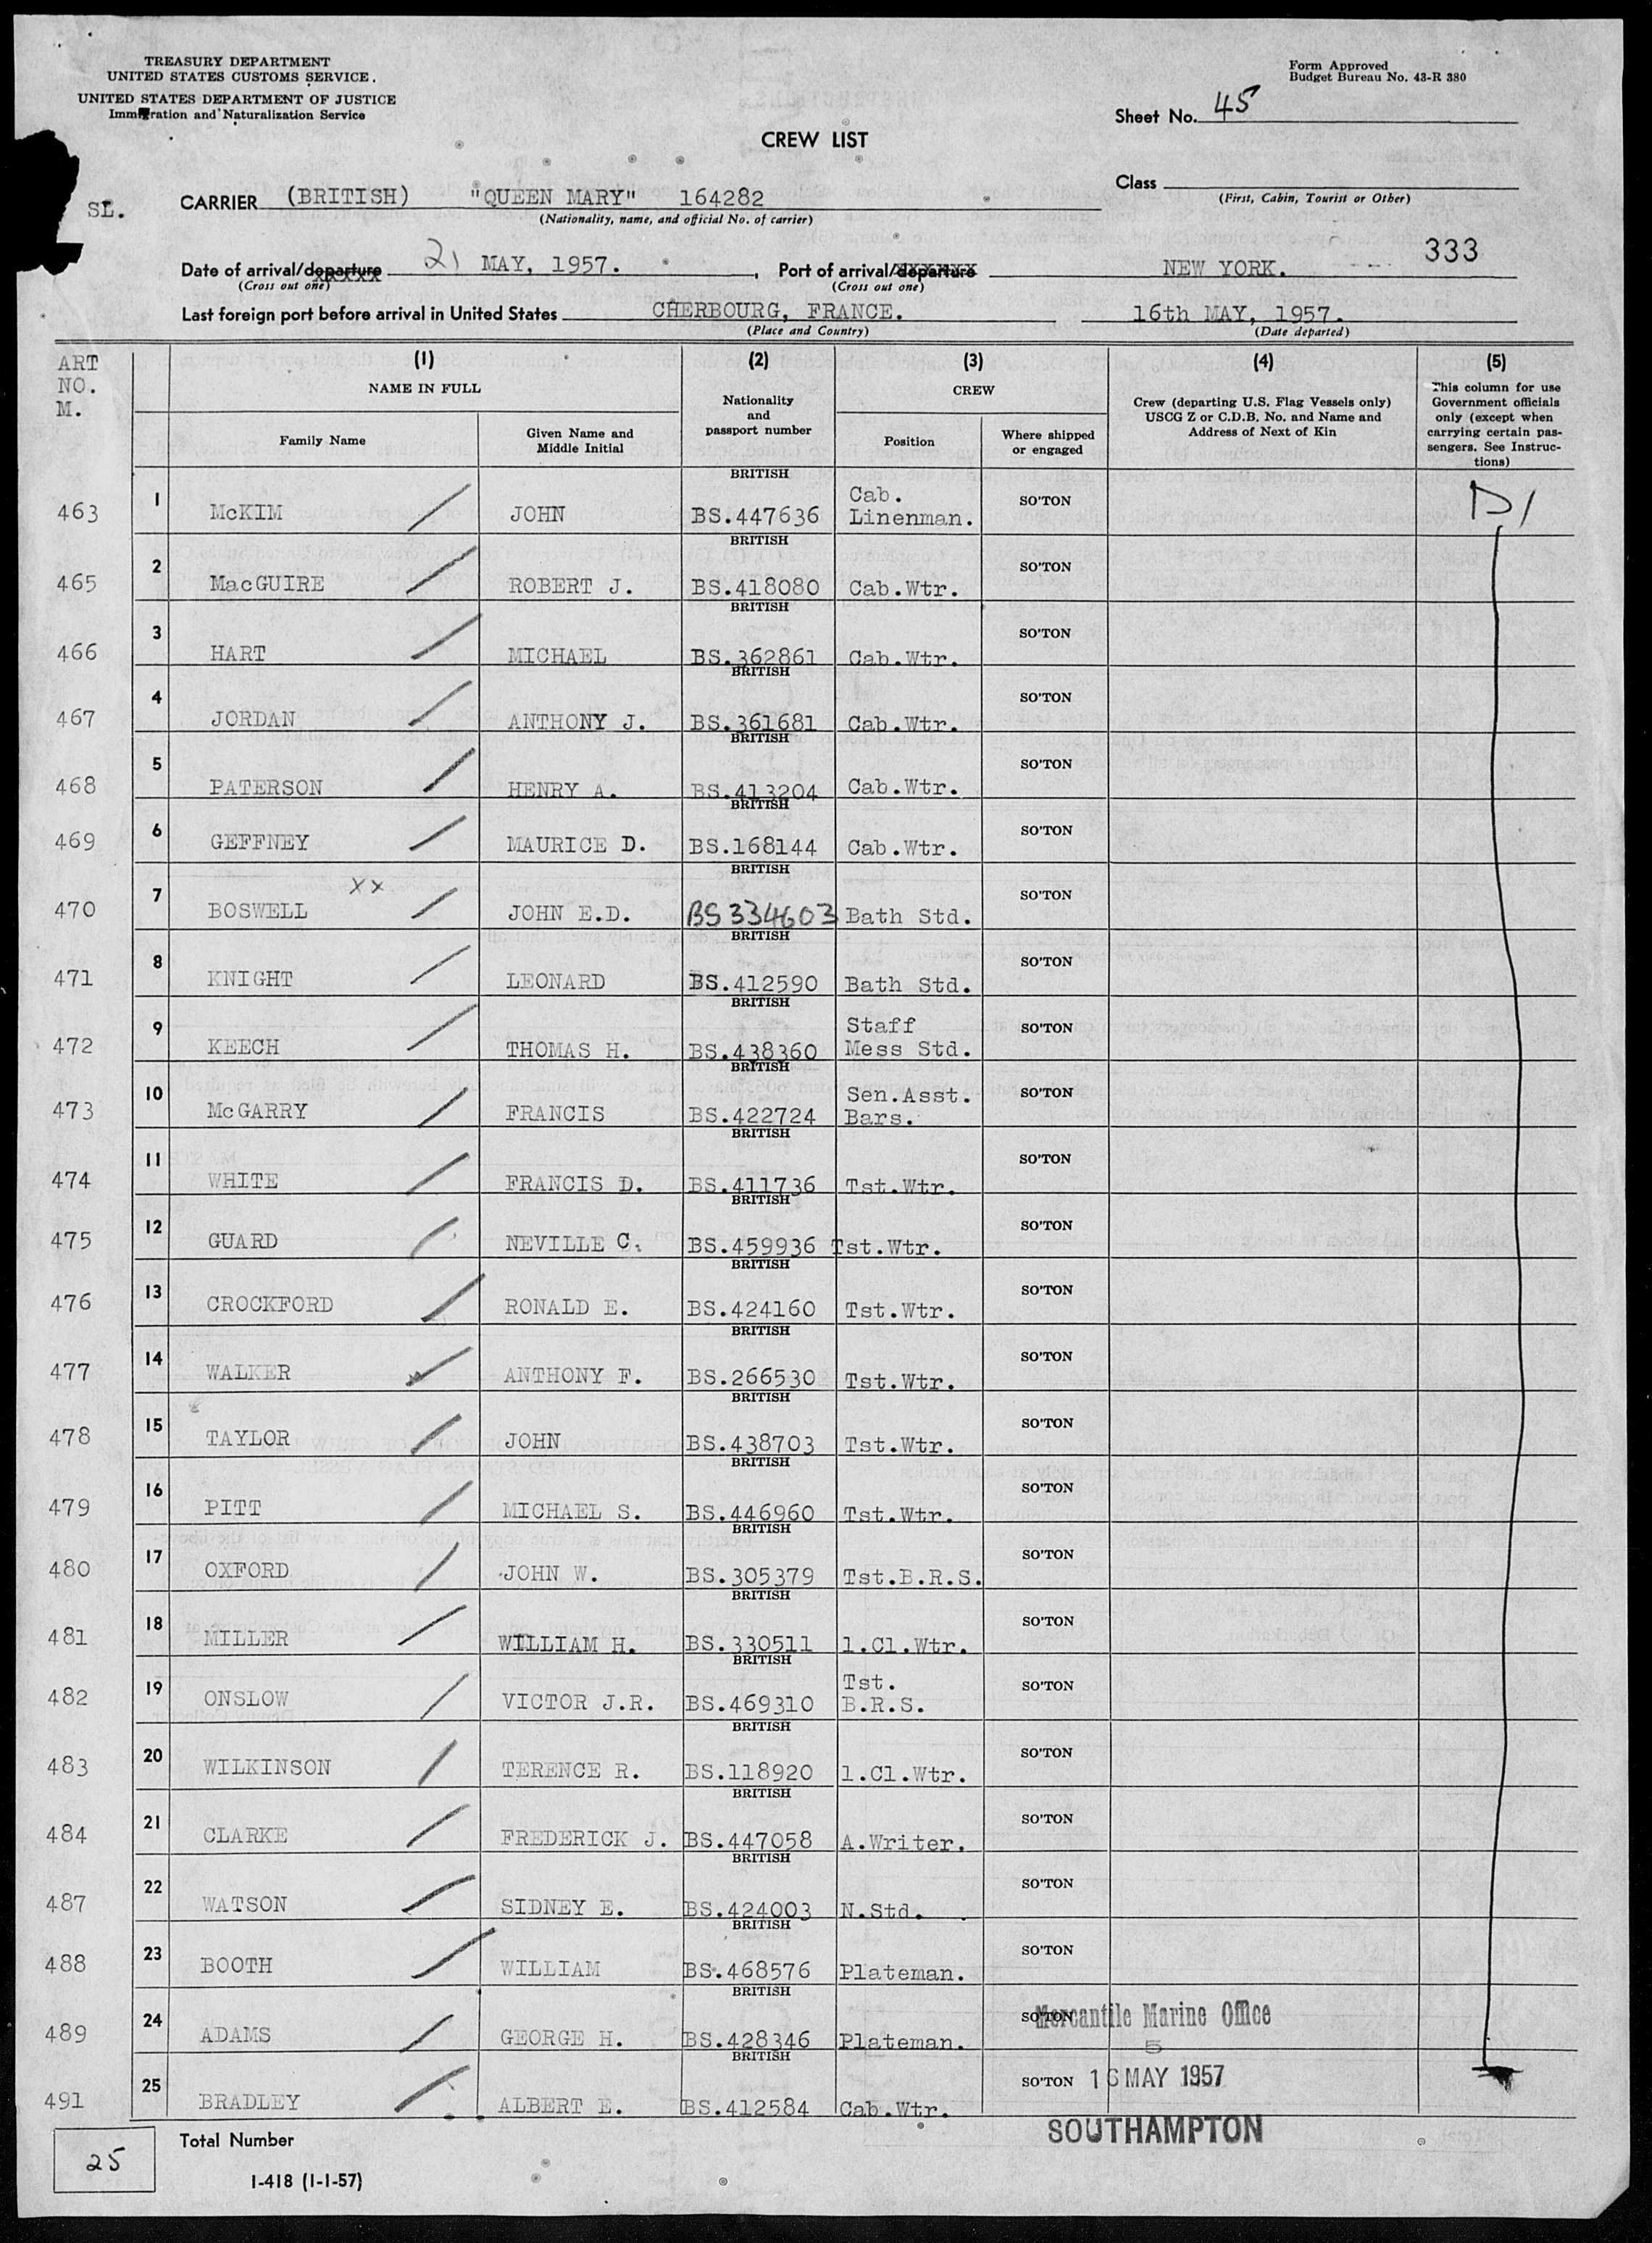 TREASURY DEPARTMENT
UNITED STATES CUSTOMS SERVICE.
UNITED STATES DEPARTMENT OF JUSTICE
Immigration and Naturalization Service
Form Approved
Budget Bureau No. 43-R 380
Sheet No. 45
CREW LIST
Class
(First, Cabin, Tourist or Other)
SL.
CARRIER (BRITISH) "QUEEN MARY" 164282
(Nationality, name, and official No. of carrier)
333
Date of arrival/departure 21 MAY, 1957. , Port of arrival/departure NEW YORK.
(Cross out one) (Cross out one)
Last foreign port before arrival in United States CHERBOURG, FRANCE. 16th MAY, 1957.
(Place and Country) (Date departed)
ART NO. M.
(1) (2) (3) (4) (5)
NAME IN FULL
Family Name
Given Name and Middle Initial
Nationality and passport number
CREW
Position
Where shipped or engaged
Crew (departing U.S. Flag Vessels only)
USCG Z or C.D.B. No. and Name and
Address of Next of Kin
This column for use
Government officials
only (except when
carrying certain pas-
sengers. See Instruc-
tions)
463 1 McKIM JOHN BRITISH BS.447636 Cab. Linenman. SO'TON D1
465 2 MacGUIRE ROBERT J. BRITISH BS.418080 Cab.Wtr. SO'TON
466 3 HART MICHAEL BRITISH BS.362861 Cab.Wtr. SO'TON
467 4 JORDAN ANTHONY J. BRITISH BS.361681 Cab.Wtr. SO'TON
468 5 PATERSON HENRY A. BRITISH BS.413204 Cab.Wtr. SO'TON
469 6 GEFFNEY MAURICE D. BRITISH BS.168144 Cab.Wtr. SO'TON
470 7 BOSWELL xx JOHN E.D. BRITISH BS334603 Bath Std. SO'TON
471 8 KNIGHT LEONARD BRITISH BS.412590 Bath Std. SO'TON
472 9 KEECH THOMAS H. BRITISH BS.438360 Staff Mess Std. SO'TON
473 10 McGARRY FRANCIS BRITISH BS.422724 Sen.Asst. Bars. SO'TON
474 11 WHITE FRANCIS D. BRITISH BS.411736 Tst.Wtr. SO'TON
475 12 GUARD NEVILLE C. BRITISH BS.459936 Tst.Wtr. SO'TON
476 13 CROCKFORD RONALD E. BRITISH BS.424160 Tst.Wtr. SO'TON
477 14 WALKER ANTHONY F. BRITISH BS.266530 Tst.Wtr. SO'TON
478 15 TAYLOR JOHN BRITISH BS.438703 Tst.Wtr. SO'TON
479 16 PITT MICHAEL S. BRITISH BS.446960 Tst.Wtr. SO'TON
480 17 OXFORD JOHN W. BRITISH BS.305379 Tst.B.R.S. SO'TON
481 18 MILLER WILLIAM H. BRITISH BS.330511 1.Cl.Wtr. SO'TON
482 19 ONSLOW VICTOR J.R. BRITISH BS.469310 Tst. B.R.S. SO'TON
483 20 WILKINSON TERENCE R. BRITISH BS.118920 1.Cl.Wtr. SO'TON
484 21 CLARKE FREDERICK J. BRITISH BS.447058 A.Writer. SO'TON
487 22 WATSON SIDNEY E. BRITISH BS.424003 N.Std. SO'TON
488 23 BOOTH WILLIAM BRITISH BS.468576 Plateman. SO'TON
489 24 ADAMS GEORGE H. BRITISH BS.428346 Plateman. SO'TON
491 25 BRADLEY ALBERT E. BRITISH BS.412584 Cab.Wtr. SO'TON
Mercantile Marine Office
5
16 MAY 1957
SOUTHAMPTON
25 Total Number
I-418 (1-1-57)